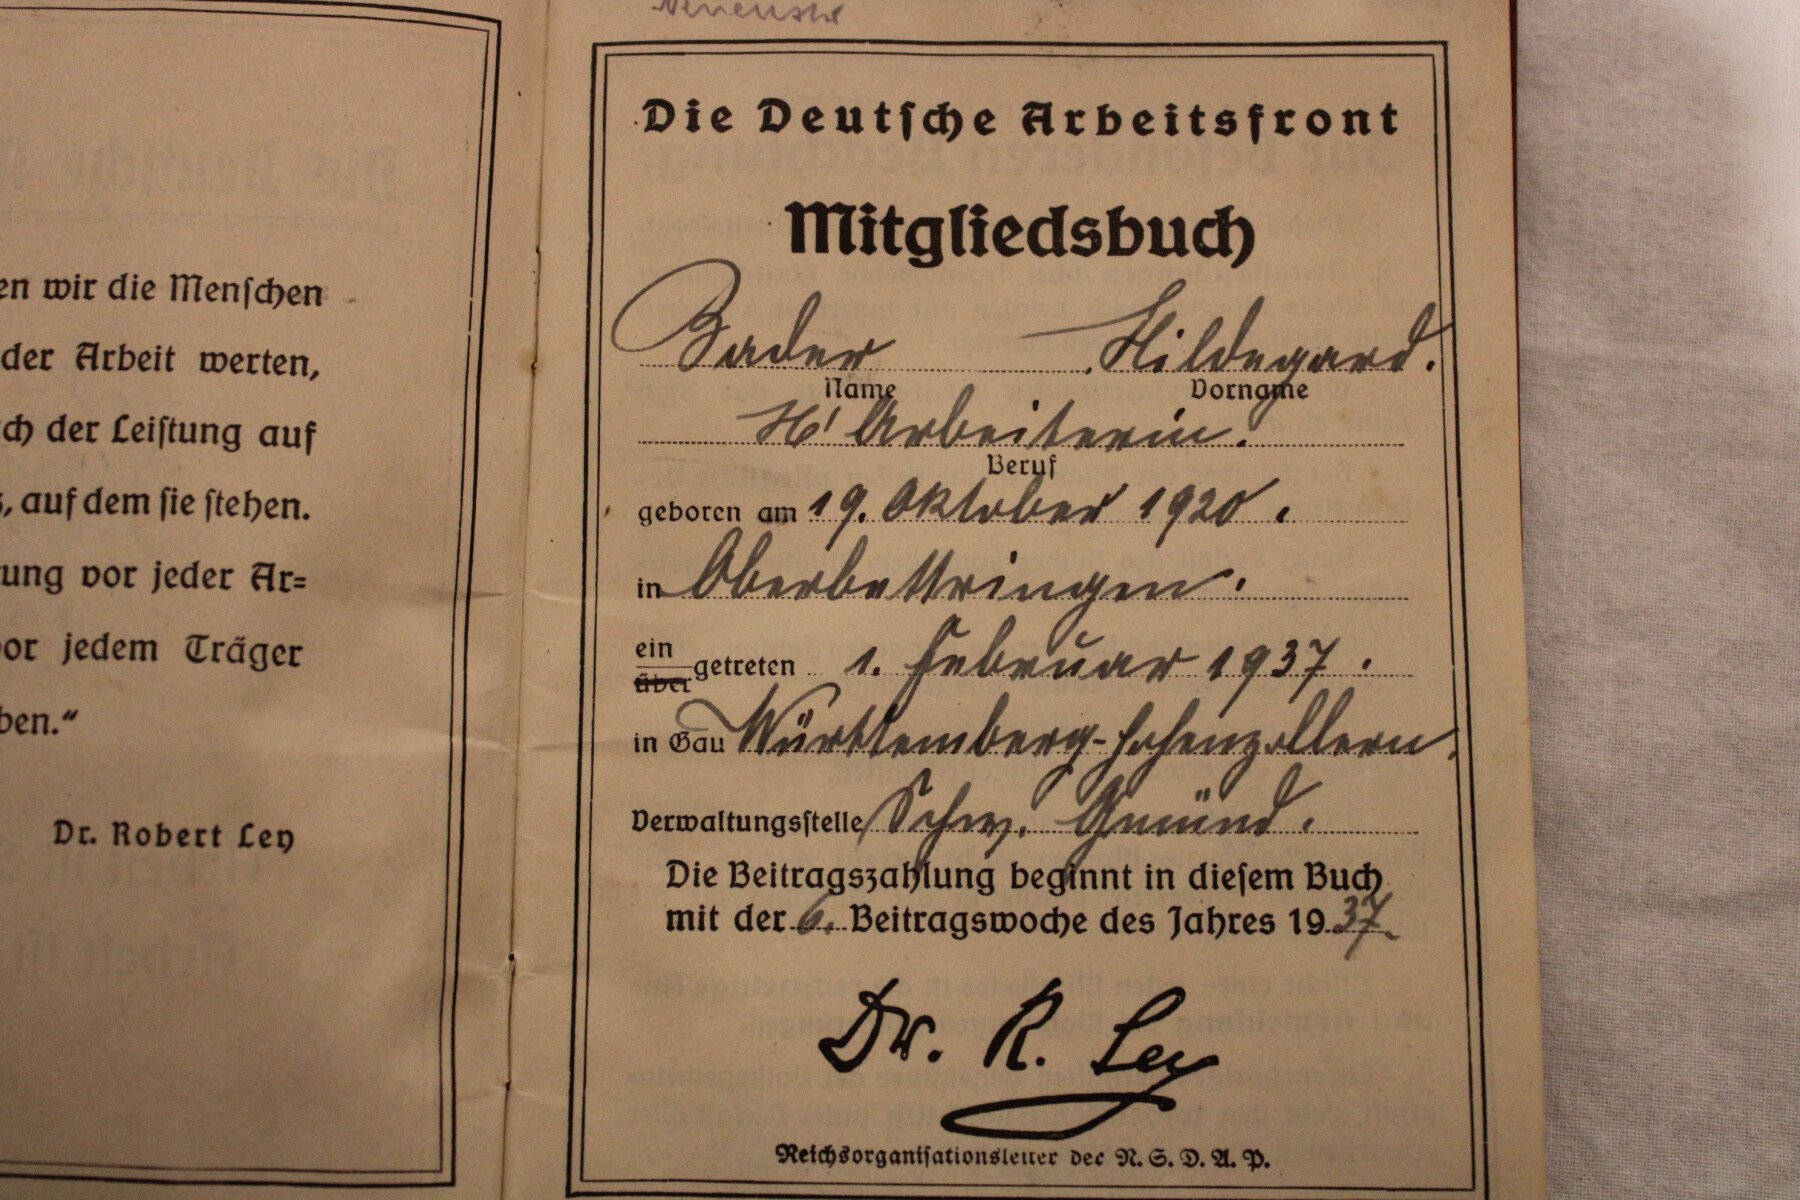 en wir die Menschen
der Arbeit werten,
ch der Leistung auf
s, auf dem sie stehen.
tung vor jeder Ar=
vor jedem Träger
ben.“
Dr. Robert Ley
Die Deutsche Arbeitsfront
Mitgliedsbuch
Bader Hildegard.
Name Vorname
H' Arbeiterin.
Beruf
geboren am 19. Oktober 1920.
in Oberbettringen.
ein
über getreten 1. Februar 1937.
in Gau Württemberg-Hohenzollern.
Verwaltungsstelle Schw. Gmünd.
Die Beitragszahlung beginnt in diesem Buch
mit der 6. Beitragswoche des Jahres 1937.
Dr. R. Ley
Reichsorganisationsleiter der N. S. D. A. P.